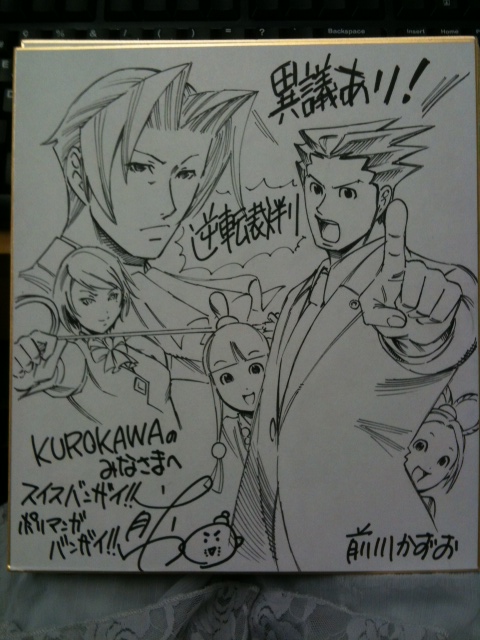 Backspace
Insert
Home
異議あり!
逆転裁判
KUROKAWAの
みなさまへ
スイスバンザイ!!
ポリマンガ
バンザイ!!
前川かずお